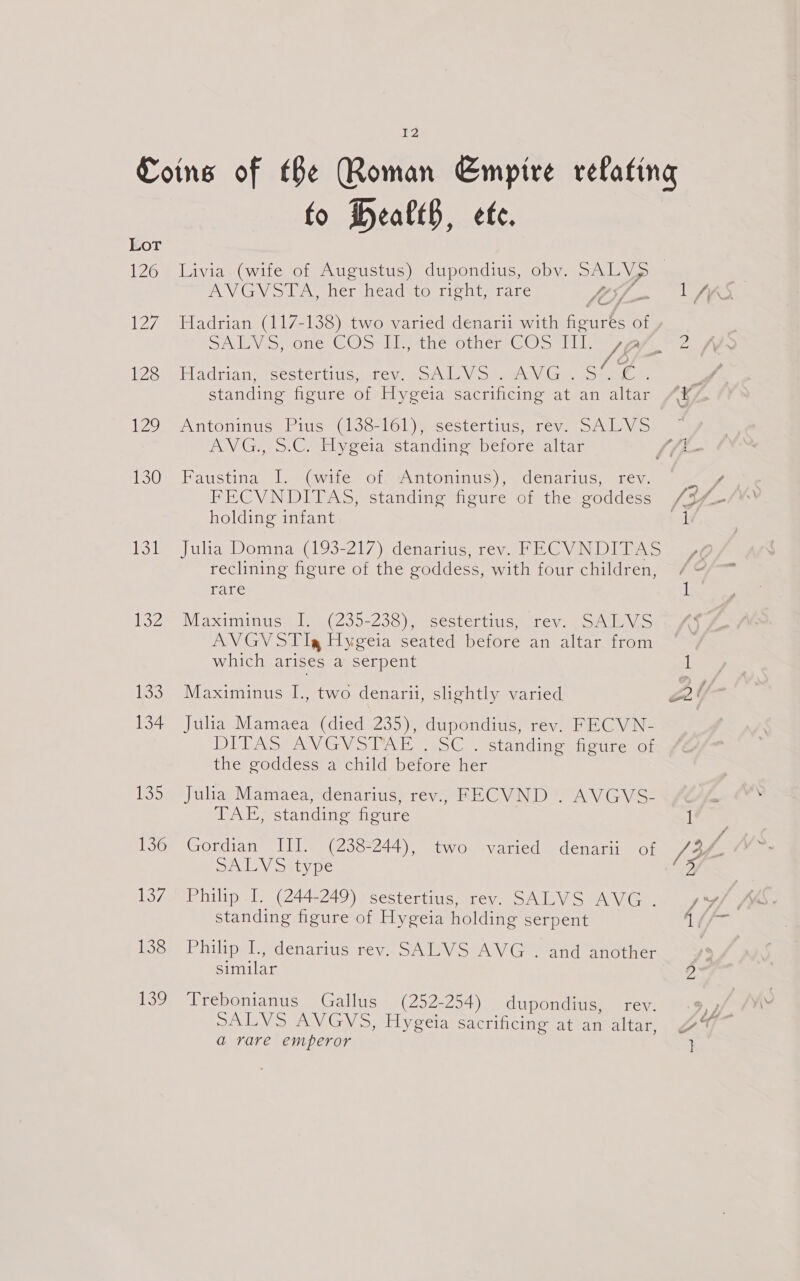 12
Coins of the Roman Empire relating
to Health, etc.
Lot
126 Livia (wife of Augustus) dupondius, obv. SALVS
AVGVSTA, her head to right, rare 1
127 Hadrian (117-138) two varied denarii with figures of
SALVS, one COS II., the other COS III. 2
128 Hadrian, sestertius, rev. SALVS . AVG . S . C .
standing figure of Hygeia sacrificing at an altar
129 Antoninus Pius (138-161), sestertius, rev. SALVS
AVG., S.C. Hygeia standing before altar
130 Faustina I. (wife of Antoninus), denarius, rev.
FECVNDITAS, standing figure of the goddess
holding infant 1
131 Julia Domna (193-217) denarius, rev. FECVNDITAS
reclining figure of the goddess, with four children,
rare 1
132 Maximinus I. (235-238), sestertius, rev. SALVS
AVGVSTI, Hygeia seated before an altar from
which arises a serpent 1
133 Maximinus I., two denarii, slightly varied
134 Julia Mamaea (died 235), dupondius, rev. FECVN-
DITAS AVGVSTAE . SC . standing figure of
the goddess a child before her
135 Julia Mamaea, denarius, rev., FECVND . AVGVS-
TAE, standing figure 1
136 Gordian III. (238-244), two varied denarii of
SALVS type
137 Philip I. (244-249) sestertius, rev. SALVS AVG .
standing figure of Hygeia holding serpent 1
138 Philip I., denarius rev. SALVS AVG . and another
similar 2
139 Trebonianus Gallus (252-254) dupondius, rev.
SALVS AVGVS, Hygeia sacrificing at an altar,
a rare emperor 1